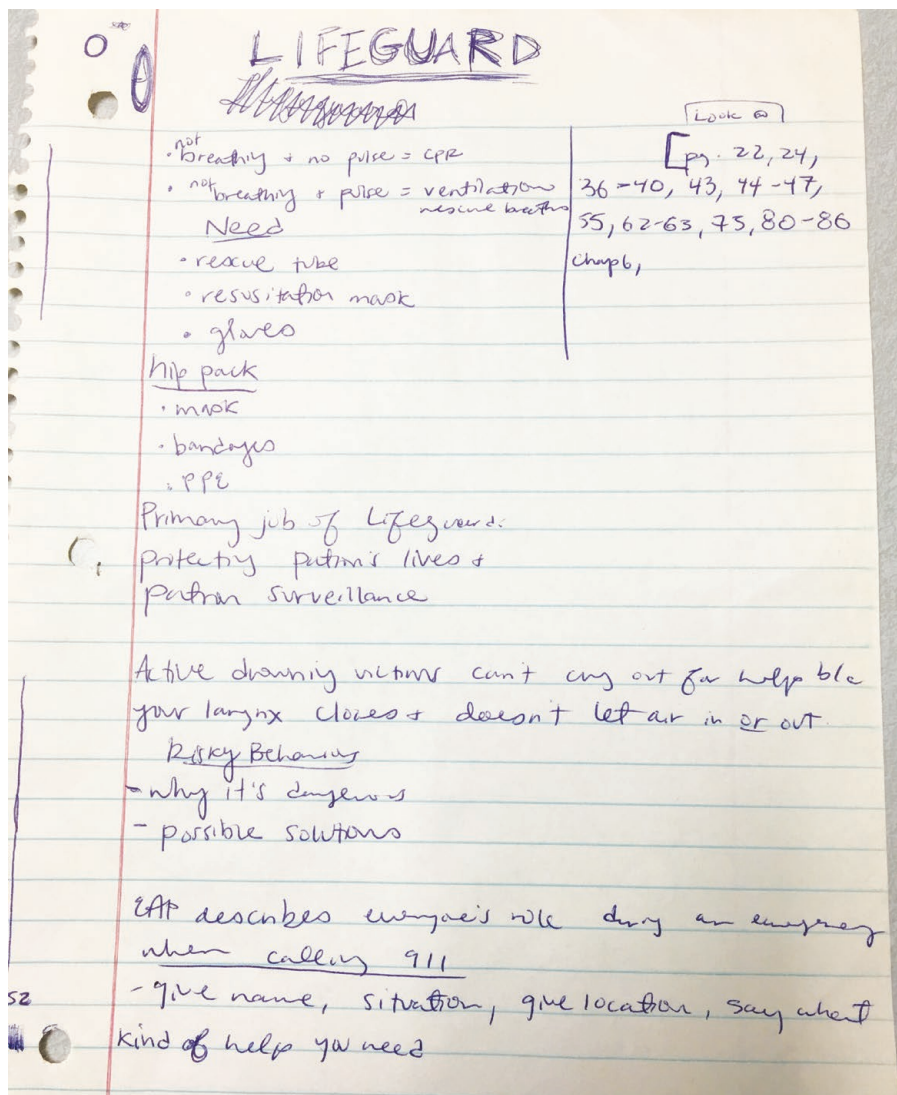 LIFEGUARD
Look @
[pg. 22, 24,
36-40, 43, 44-47,
55, 62-63, 75, 80-86
Chap 6,
• not breathing + no pulse = CPR
• not breathing + pulse = ventilation
rescue breaths
Need
• rescue tube
• resusitation mask
• gloves
hip pack
• mask
• bandages
• PPE
Primary job of Lifeguard:
protecting patron's lives +
patron surveillance
Active drowning victims can't cry out for help b/c
your larynx closes + doesn't let air in or out
Risky Behaviors
- why it's dangerous
- possible solutions
EAP describes everyone's role during an emergency
when calling 911
- give name, situation, give location, say what
kind of help you need
52